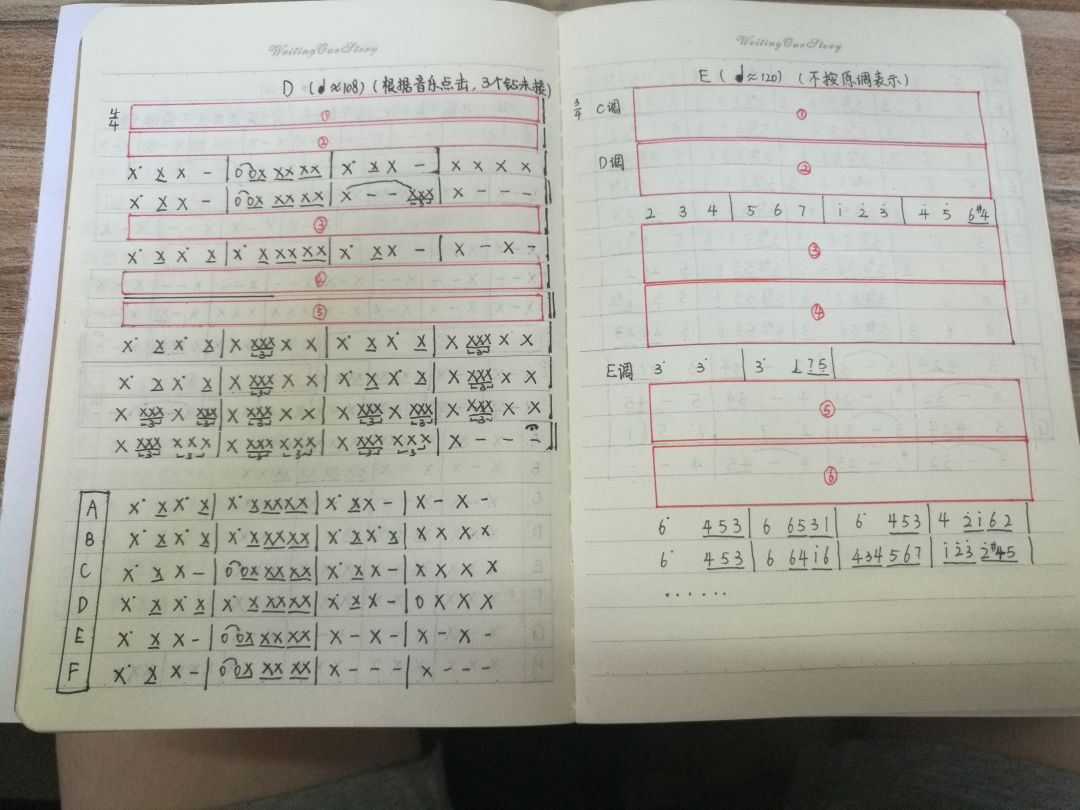 WritingOurStory
D (♩≈108) (根据音乐点击,3个钻米接)
4/4 ①
②
X· X X - | 0 0X XX XX | X· X X - | X X X X |
X· X X - | 0 0X XX XX | X - - XXX 3 | X - - - ‖
③
X· X X· X | X· X XX XX | X· X X - | X - X - |
④
⑤
X· X X· X | X XXX 3 X X | X· X X· X | X XXX 3 X X |
X· X X· X | X XXX 3 X X | X· X X· X | X XXX 3 X X |
X XXX 3 X XXX 3 | X XXX 3 X X | X XXX 3 X XXX 3 | X XXX 3 X X |
X XXX 3 XXX 3 | X XXX 3 XXX 3 | X XXX 3 XXX 3 | X - - - ‖
A X· X X· X | X· X XX XX | X· X X - | X - X -
B X· X X· X | X· X XX XX | X· X X· X | X X X X
C X· X X - | 0 0X XX XX | X· X X - | X X X X
D X· X X· X | X· X XX XX | X· X X - | 0 X X X
E X· X X - | 0 0X XX XX | X - X - | X - X -
F X· X X - | 0 0X XX XX | X - - - | X - - -
WritingOurStory
E (♩≈120) (不按原调表示)
3/4 C调 ①
D调 ②
2 3 4 | 5 6 7 | i 2̇ 3̇ | 4̇ 5̇ 6#4 |
③
④
E调 3· 3· | 3· 1 7 5 |
⑤
⑥
6· 4 5 3 | 6 6 5 3 1 | 6· 4 5 3 | 4 2̇ i 6 2 |
6· 4 5 3 | 6 6 4 i 6 | 4 3 4 5 6 7 | i 2̇ 3̇ 2̇ #4 5 |
······